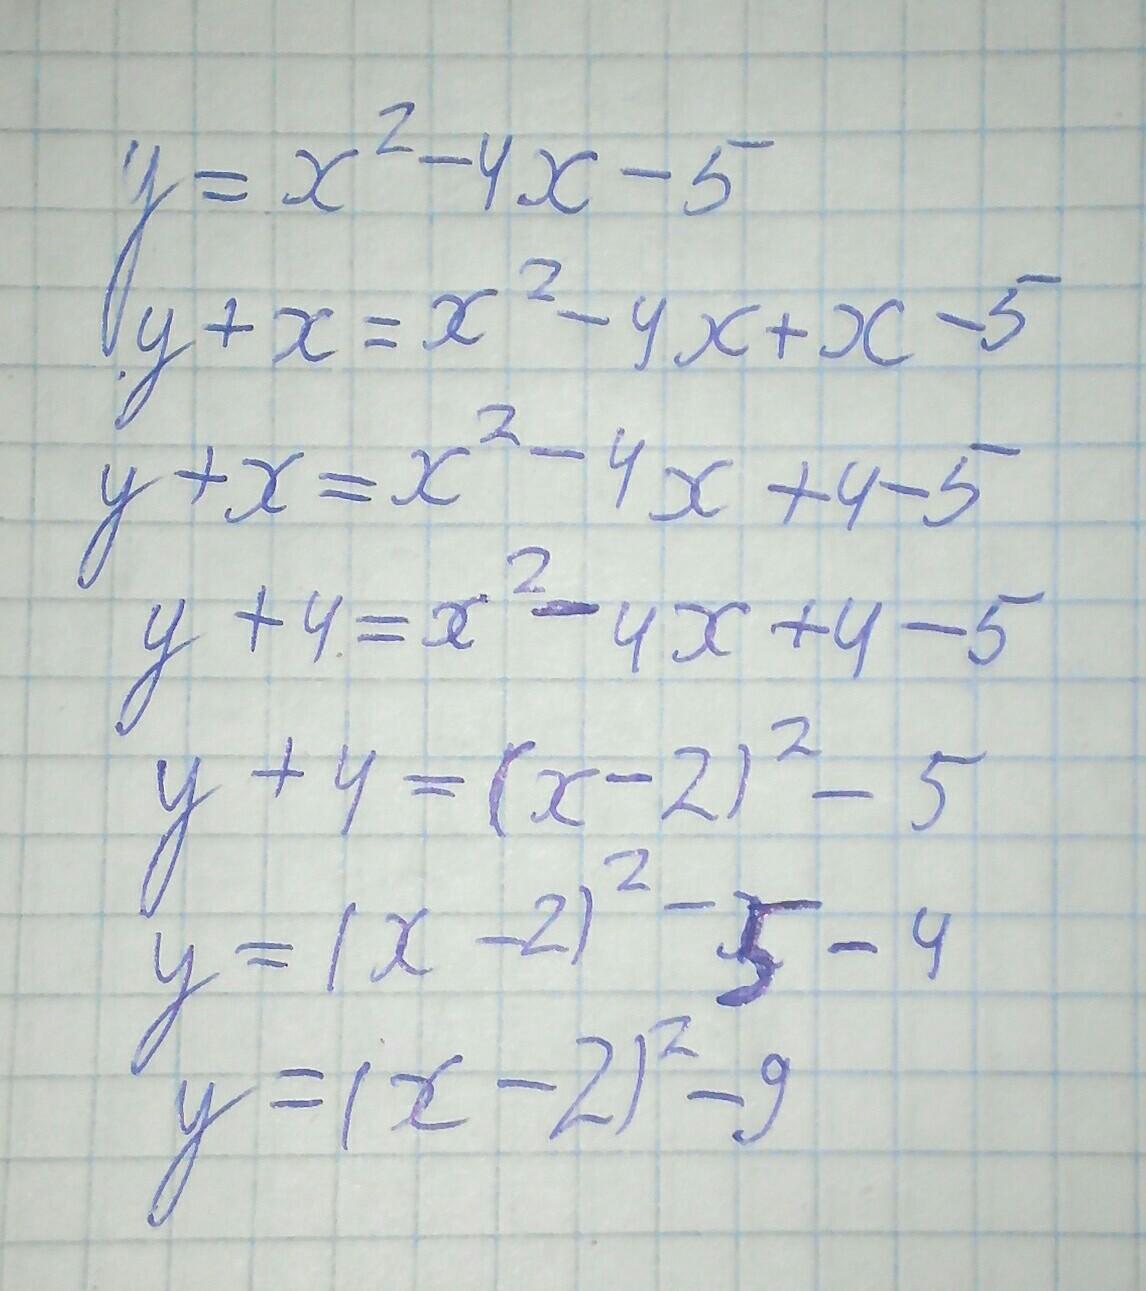 y = x² - 4x - 5
y + x = x² - 4x + x - 5
y + x = x² - 4x + 4 - 5
y + 4 = x² - 4x + 4 - 5
y + 4 = (x - 2)² - 5
y = (x - 2)² - 5 - 4
y = (x - 2)² - 9